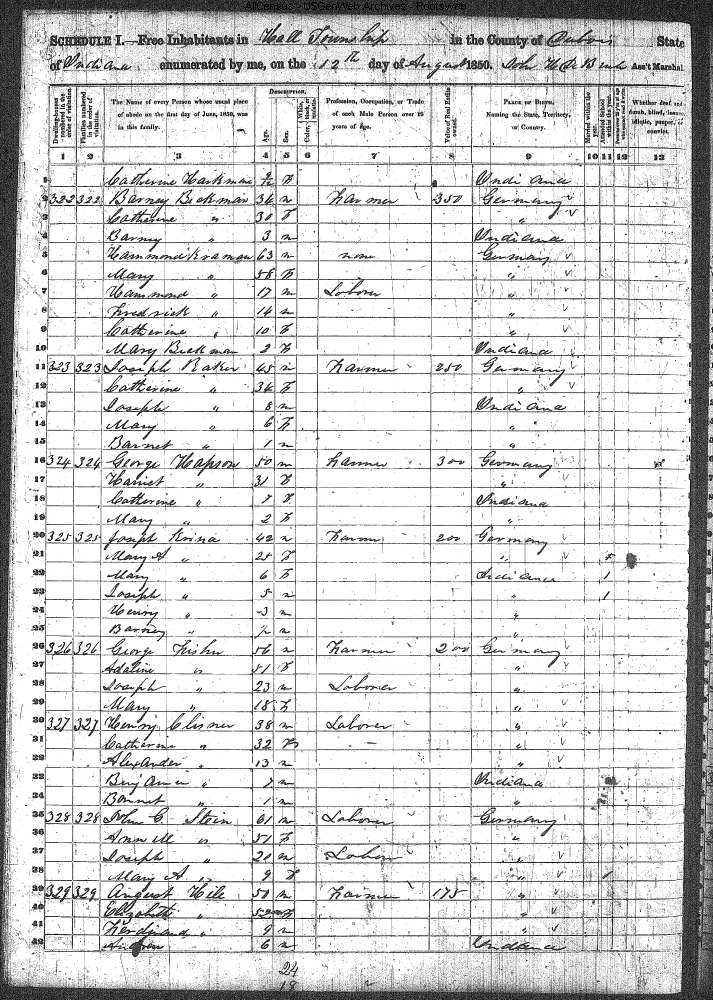 AllCensus - USGenWeb Archives - Rootsweb
SCHEDULE I.—Free Inhabitants in Hall Township in the County of Dubois State
of Indiana enumerated by me, on the 12th day of August 1850. John Ass't Marshal
Dwelling-houses numbered in the order of visitation.
Families numbered in the order of visitation.
The Name of every Person whose usual place of abode on the first day of June, 1850, was in this family.
DESCRIPTION.
Age.
Sex.
Color,
Profession, Occupation, or Trade of each Male Person over 15 years of age.
Value of Real Estate owned.
PLACE OF BIRTH.
Naming the State, Territory, or Country.
Married within the year.
Attended School within the year.
Whether deaf and dumb, blind, insane, idiotic, pauper, or convict.
1 2 3 4 5 6 7 8 9 10 11 12 13
1 Catherine F Indiana
2 322 322 Barney Beckman 36 m Farmer 350 Germany
3 Catherine " 30 F "
4 Barney " 3 m Indiana
5 Hammond Kraman 63 m none Germany
6 Mary " 58 F "
7 Hammond " 17 m Laborer "
8 Fredrick " 14 m "
9 Catherine " 10 F "
10 Mary Beckman 2 F Indiana
11 323 323 Joseph Baker 45 m Farmer 250 Germany
12 Catherine " 36 F "
13 Joseph " 8 m Indiana
14 Mary " 6 F "
15 Barnet " 1 m "
16 324 324 George Hapson 50 m Farmer 300 Germany
17 Harriet " 31 F "
18 Catherine " 7 F Indiana
19 Mary " 2 F "
20 325 325 Joseph Krina 42 m Farmer 200 Germany
21 Mary A " 25 F "
22 Mary " 6 F Indiana 1
23 Joseph " 5 m " 1
24 Henry " 3 m "
25 Barney " m "
26 326 326 George Fisher 56 m Farmer 200 Germany
27 Adaline " 51 F "
28 Joseph " 23 m Laborer "
29 Mary " 18 F "
30 327 327 Henry Clisner 38 m Laborer "
31 Catherine " 32 F — "
32 Alexander " 13 m "
33 Benjamin " 7 m Indiana
34 Bonnet " 1 m "
35 328 328 John G. Stein 61 m Laborer Germany
36 Ann M " 51 F "
37 Joseph " 20 m Labor "
38 Mary A " 9 F " 1
39 329 329 August Hile 50 m Farmer 175 "
40 Elizabeth " F "
41 Ferdinand " 9 m "
42 Andrew 6 m Indiana
24
18